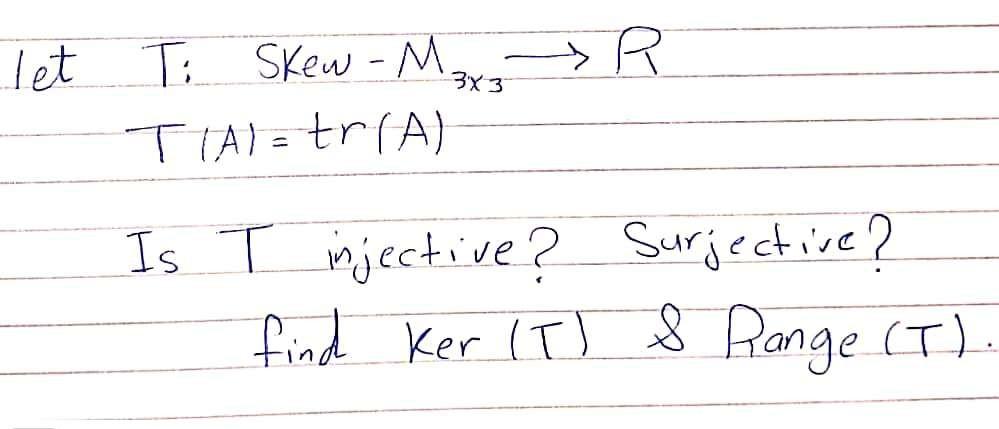 let T: Skew-M3x3 → R
T(A) = tr(A)
Is T injective? Surjective?
find Ker (T) & Range (T).